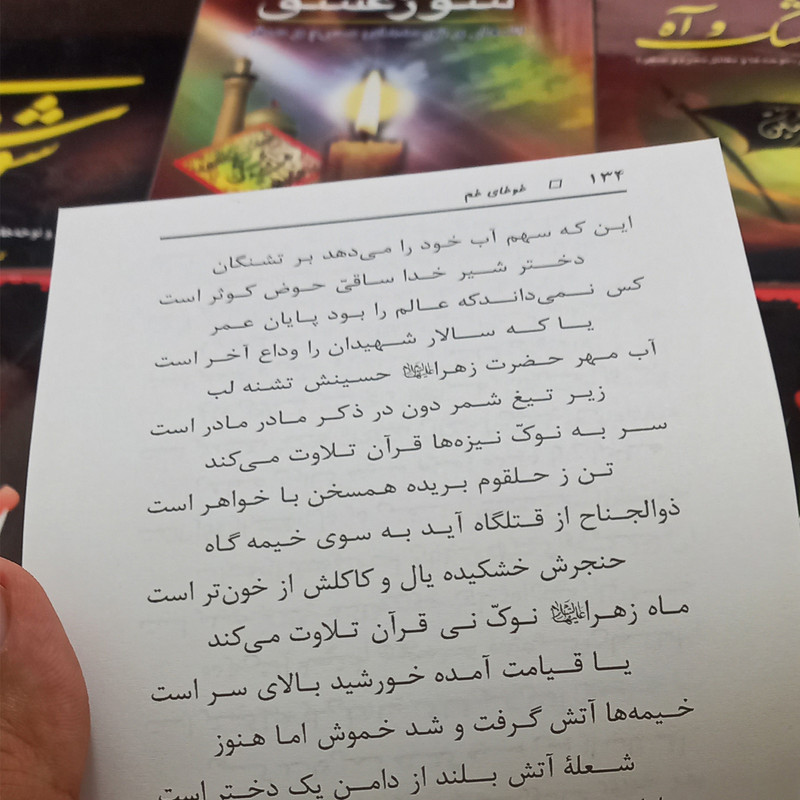 شور عشق
اشک و آه
۱۳۴ □ طوطیای غم
این که سهم آب خود را می‌دهد بر تشنگان
دختر شیر خدا ساقیّ حوض کوثر است
کس نمی‌داندکه عالم را بود پایان عمر
یا که سالار شهیدان را وداع آخر است
آب مهر حضرت زهرا علیهاالسلام حسینش تشنه لب
زیر تیغ شمر دون در ذکر مادر مادر است
سر به نوکّ نیزه‌ها قرآن تلاوت می‌کند
تن ز حلقوم بریده همسخن با خواهر است
ذوالجناح از قتلگاه آید به سوی خیمه گاه
حنجرش خشکیده یال و کاکلش از خون‌تر است
ماه زهرا علیهاالسلام نوکّ نی قرآن تلاوت می‌کند
یا قیامت آمده خورشید بالای سر است
خیمه‌ها آتش گرفت و شد خموش اما هنوز
شعلهٔ آتش بلند از دامن یک دختر است